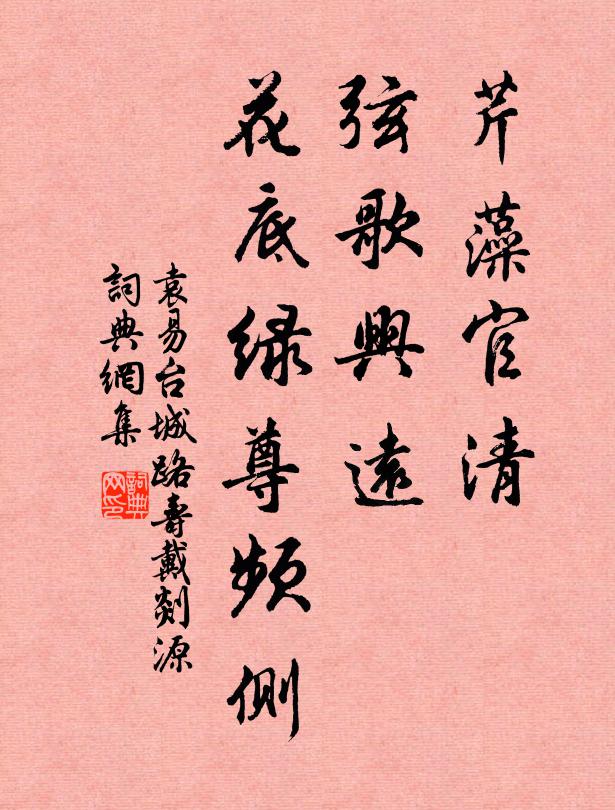 芹藻官清
弦歌興遠
花底緑尊頻側
袁易台城路壽戴剡源
詞典網集
詞典网印